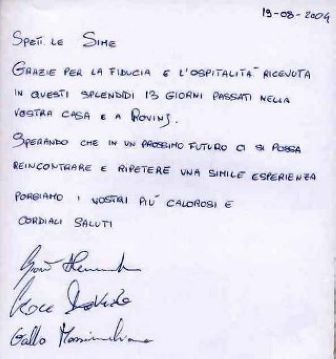 19-08-2009
Spett. le Sime
Grazie per la fiducia e l'ospitalità ricevuta
in questi splendidi 13 giorni passati nella
vostra casa e a Rovinj.
Sperando che in un prossimo futuro ci si possa
reincontrare e ripetere una simile esperienza
porgiamo i vostri più calorosi e
cordiali saluti
Gallo Massimiliano